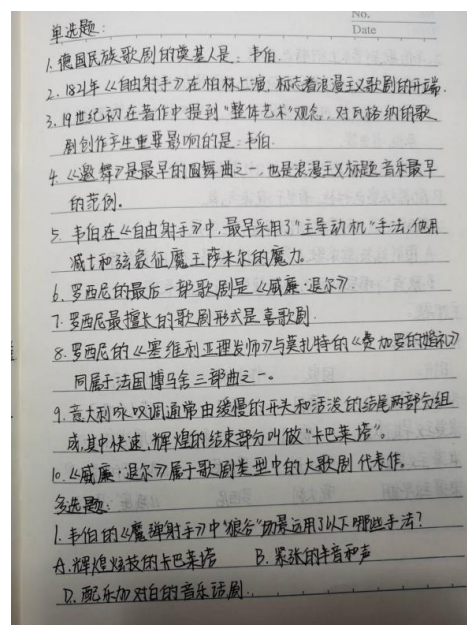 No.
Date
单选题:
1. 德国民族歌剧的奠基人是: 韦伯.
2. 1821年《自由射手》在柏林上演, 标志着浪漫主义歌剧的开端.
3. 19世纪初在著作中提到"整体艺术"观念, 对瓦格纳的歌
剧创作产生重要影响的是: 韦伯.
4. 《邀舞》是最早的圆舞曲之一, 也是浪漫主义标题音乐最早
的范例。
5. 韦伯在《自由射手》中, 最早采用了"主导动机"手法, 他用
减七和弦象征魔王萨米尔的魔力。
6. 罗西尼的最后一部歌剧是《威廉·退尔》.
7. 罗西尼最擅长的歌剧形式是喜歌剧.
8. 罗西尼的《塞维利亚理发师》与莫扎特的《费加罗的婚礼》
同属于法国博马舍三部曲之一。
9. 意大利咏叹调通常由缓慢的开头和活泼的结尾两部分组
成, 其中快速、辉煌的结束部分叫做"卡巴莱塔"。
10. 《威廉·退尔》属于歌剧类型中的大歌剧代表作。
多选题:
1. 韦伯的《魔弹射手》中"狼谷"场景运用了以下哪些手法?
A. 辉煌炫技的卡巴莱塔 B. 紧张的半音和声
D. 配乐加对白的音乐话剧.